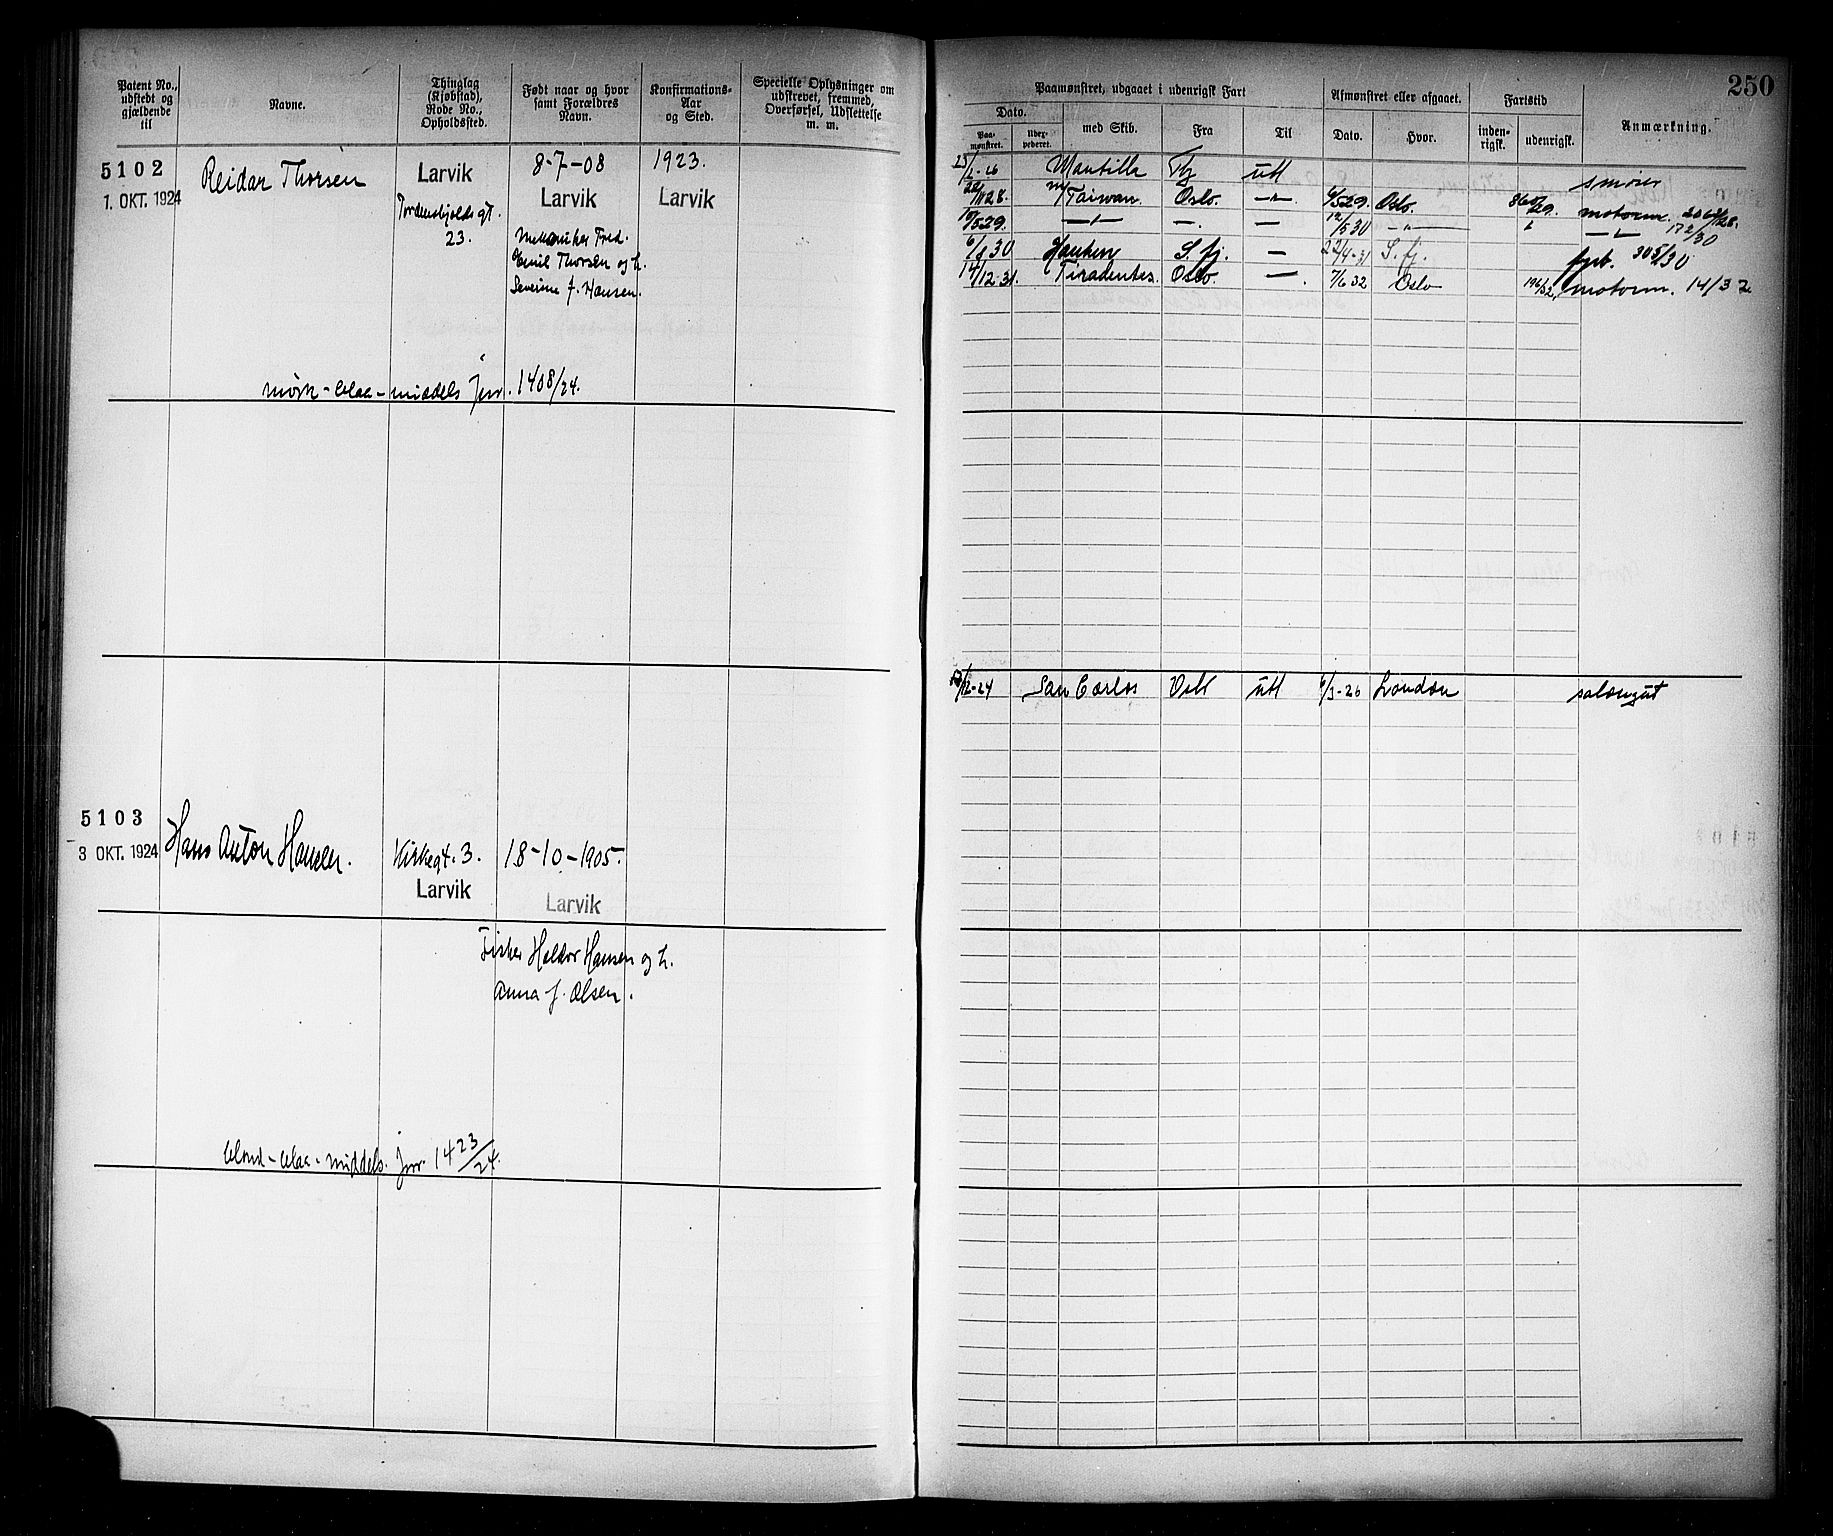 Patent No., udstedt og gjældende til
Navne.
Thinglag (Kjøbstad), Rode No., Opholdssted.
Født naar og hvor samt Forældres Navn.
Konfirmations-Aar og Sted.
Specielle Oplysninger om udskrevet, fremmed, Overførsel, Udflettelse m. m.
5102
1. OKT. 1924
Reidar Thorsen
Larvik
Tordenskjolds gt.
23.
8-7-08
Larvik
Mekaniker Fred.
Emil Thorsen og h.
Severine f. Hansen.
1923.
Larvik
mørk - blaa - middels Jnr. 1408/24.
5103
3 OKT. 1924
Hans Anton Hansen.
Kirkegt. 3.
Larvik
18-10-1905.
Larvik
Fisker Haldor Hansen og h.
Anna f. Olsen.
blond - blaa - middels. Jnr. 1423/24.
250
Paamønstret, udgaaet i udenrigsk Fart
Afmønstret eller afgaaet.
Fartstid
Anmærkning.
Dato.
Paa-mønstret.
med Skib.
Fra
Til
Dato.
Hvor.
inden-rigsk.
udenrigsk.
Mantilla utt
M/ Taiwan. Oslo. — " — 529. Oslo. motorm.
/529. — " — — . — /530 — " — — " — 172/30
6/8 30 Hauken S. fj. — 22/4-31 S. fj. fyrb. 305/30
14/12-31. Tiradentes. Oslo. — . 7/6 32 Oslo motorm. 14/32
/12-24 San Carlos utt 6/3-26 London salongut